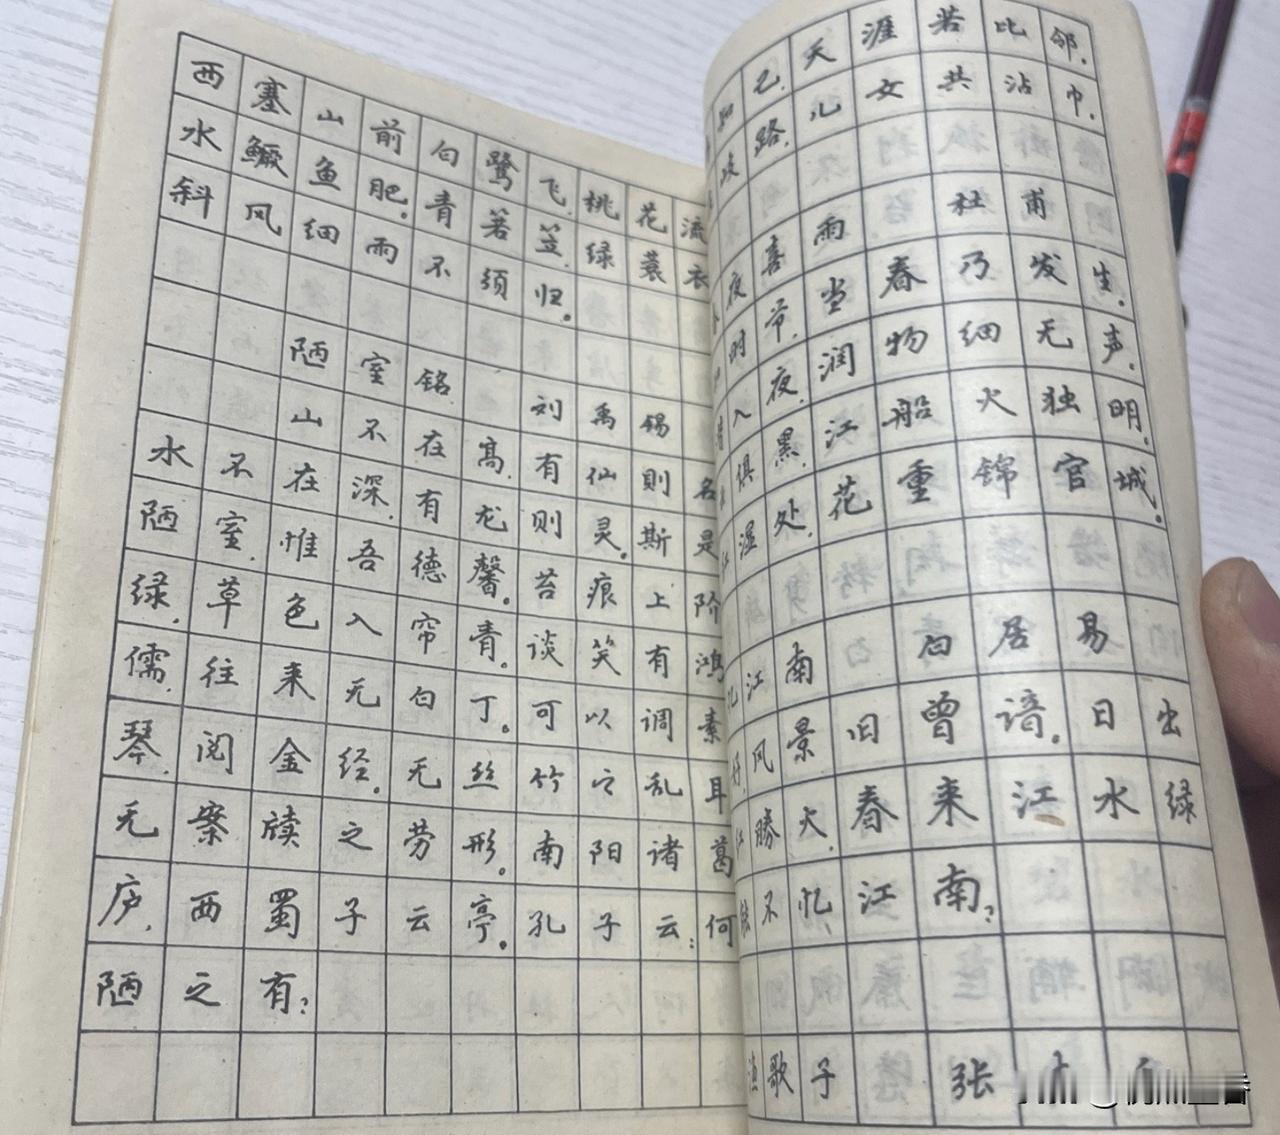 西塞山前白鹭飞,桃花流
水鳜鱼肥。青箬笠,绿蓑衣
斜风细雨不须归。
陋室铭 刘禹锡
山不在高,有仙则名
水不在深,有龙则灵。斯是
陋室,惟吾德馨。苔痕上阶
绿,草色入帘青。谈笑有鸿
儒,往来无白丁。可以调素
琴,阅金经。无丝竹之乱耳
无案牍之劳形。南阳诸葛
庐,西蜀子云亭。孔子云:何
陋之有?
知己,天涯若比邻.
歧路,儿女共沾巾.
夜喜雨 杜甫
时节,当春乃发生.
入夜,润物细无声.
俱黑,江船火独明.
湿处,花重锦官城。
忆江南 白居易
好,风景旧曾谙。日出
红胜火,春来江水绿
能不忆江南?
渔歌子 张